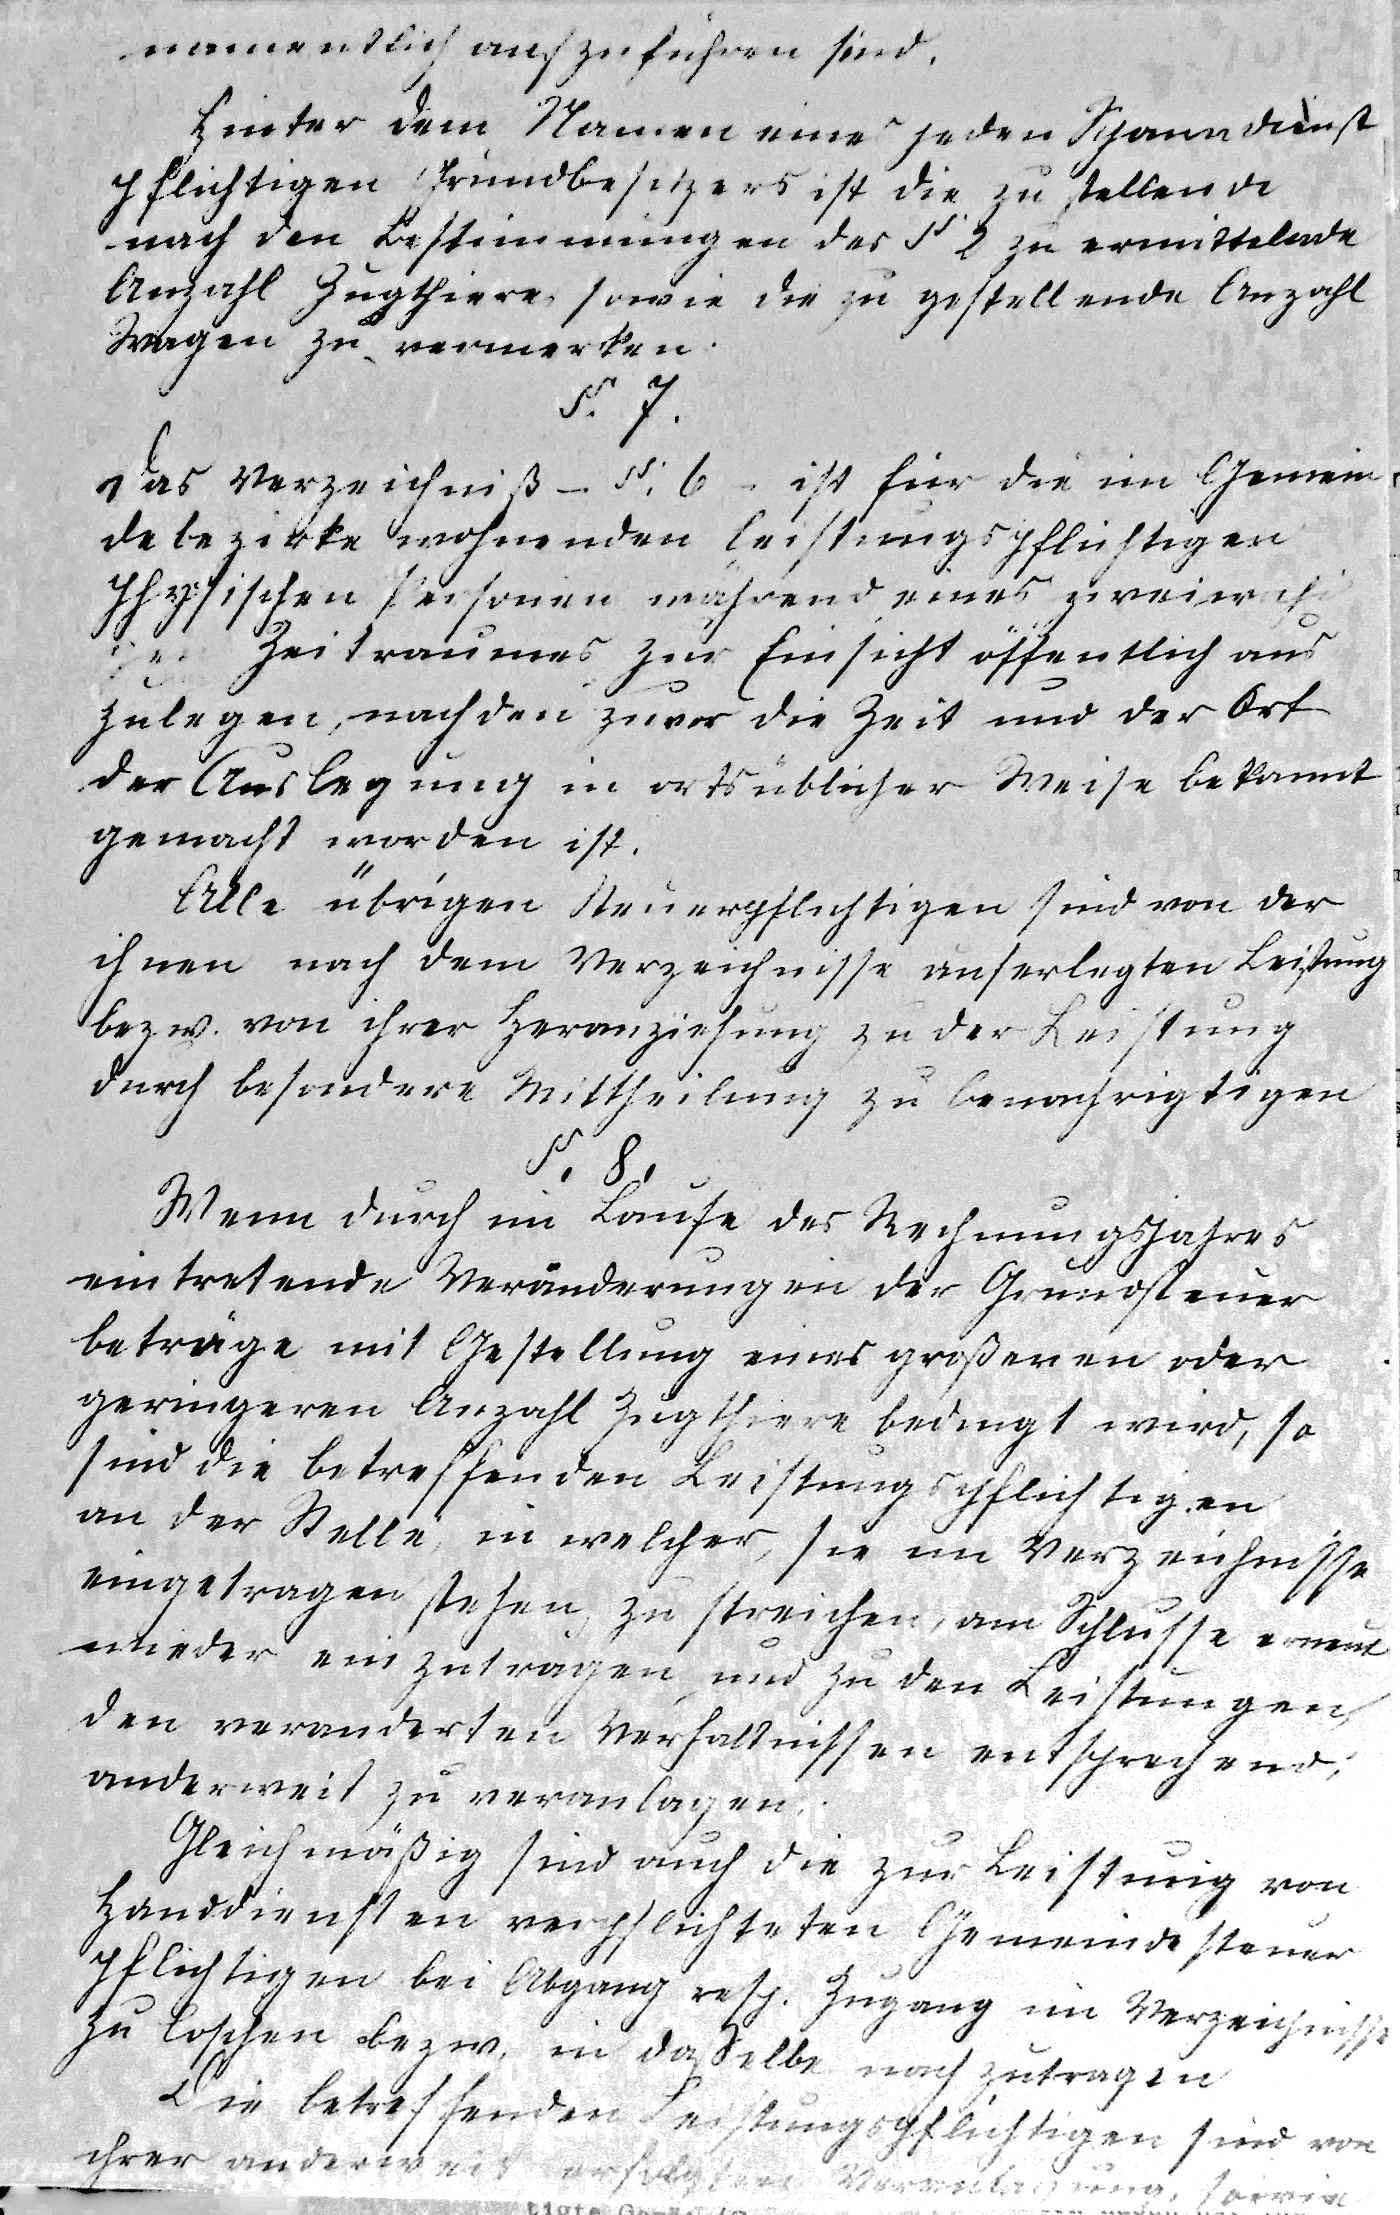 namentlich aufzuführen sind.
Hinter dem Namen eines jeden Spanndienst
pflichtigen Grundbesitzers ist die zu stellende
nach den Bestimmungen des § 2 zu ermittelnde
Anzahl Zugthiere, sowie die zu gestellende Anzahl
Wagen zu vermerken.
§. 7.
Das Verzeichniß – §. 6 – ist für die im Gemein-
debezirke wohnenden leistungspflichtigen
physischen Personen während eines zweiwöchi
gen Zeitraumes zur Einsicht öffentlich aus
zulegen, nachden zuvor die Zeit und der Ort
der Auslegung in ortsüblicher Weise bekannt
gemacht worden ist.
Alle übrigen Steuerpflichtigen sind von der
ihnen nach dem Verzeichnisse auferlegten Leistung
bezw. von ihrer Heranziehung zu der Leistung
durch besondere Mittheilung zu benachrigtigen
§. 8.
Wenn durch im Laufe des Rechnungsjahres
eintretende Veränderungen der Grundsteuer
beträge mit Gestellung eines großeren oder
geringeren Anzahl Zugthiere bedingt wird, so
sind die betreffenden Leistungspflichtigen
an der Stelle, in welcher, sie im Verzeichnisse
eingetragen stehen, zu streichen, am Schlusse erneut
wieder einzutragen und zu den Leistungen,
den veranderten Verhaltnissen entsprechend,
anderweit zu veranlagen.
Gleichmäßig sind auch die zur Leistung von
Handdiensten verpflichteten Gemeindesteuer
pflichtigen bei Abgang resp. Zugang im Verzeichnisse
zu loschen bezw. in dasselbe nachzutragen
Die betreffenden Leistungspflichtigen sind von
ihrer anderweit erfolgten Veranlagung, sowie